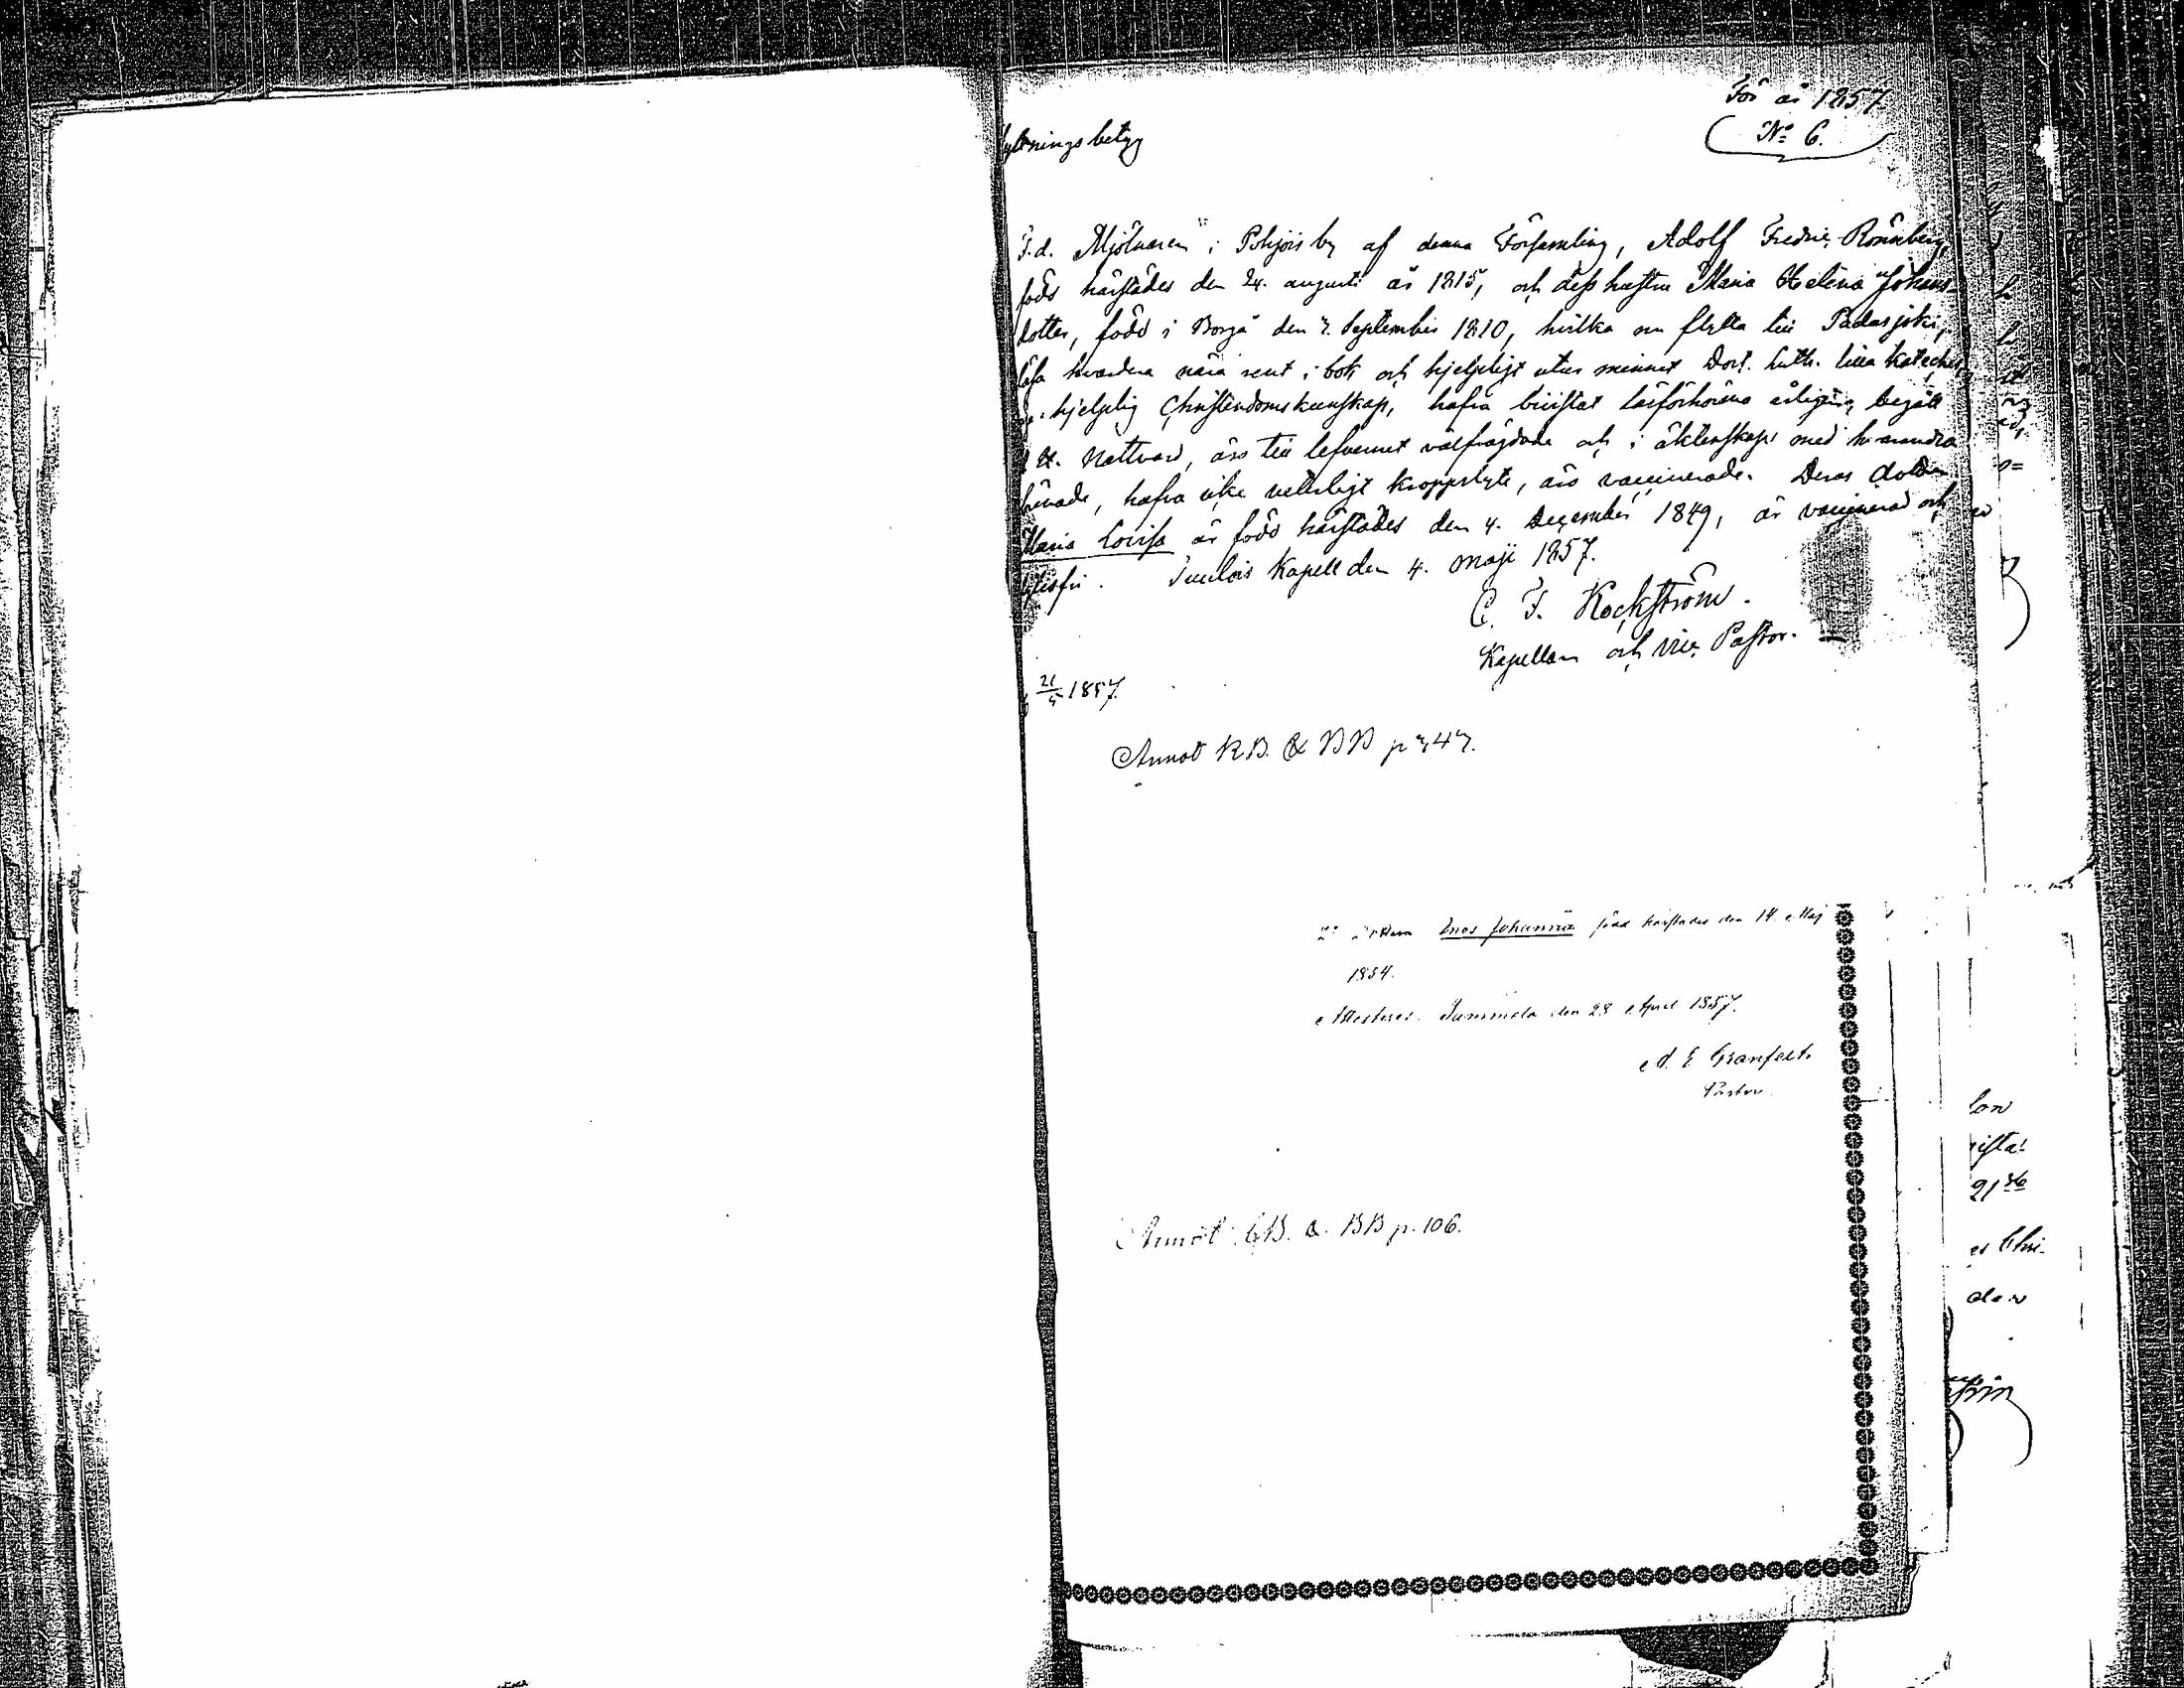 För år 1857
No 6.
yttningsbetyg
F.d. Mjölnaren i Pohjois by af denna Församling, Adolf Fredric Rönnberg,
född härstädes den 24. augusti år 1815, och dess hustru Maria Helena Johans-
dotter, född i Borgå den 7. September 1810, hvilka nu flytta till Padasjoki,
läsa hvardera nära rent i bok och hjelpligt utur minnet Doct. Luth. lilla kateches,
hjelplig Christendomskunskap, hafva bivistat läsförhören årligen, begått
H. Nattvard, äro till lefvernet välfrägdade och i äktenskap med hvarandra
lefvade, hafva icke veterligt kroppslyte, äro vaccinerade. Deras dotter
Maria Lovisa är född härstädes den 4. December 1849, är vaccinerad och
lytisfri. Tuulois Kapell den 4. Maji 1857.
C. F. Kockström.
Kapellan och vice Pastor.
21/5 1857.
Annot K.B. & BB p 747.
2: Dottern Enos Johanna född härstädes den 14 Maj
1854.
Attesteras. Tammela den 28 April 1857.
A. F. Granfelt.
Pastor
Annot K.B. & BB p. 106.
lon
vista!
es Chri-
den